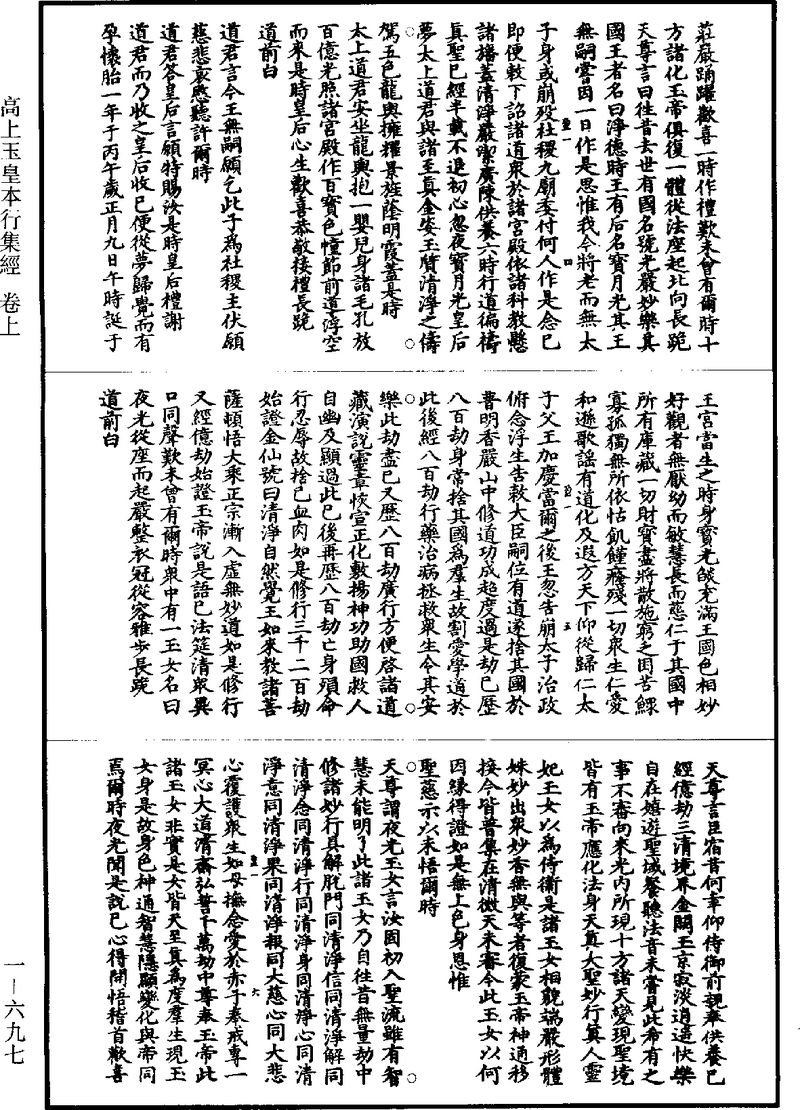 高上玉皇本行集經 卷上
一—六九七
莊嚴踊躍歡喜一時作禮歎未曾有爾時十
方諸化玉帝俱復一體從法座起北向長跪
天尊言曰往昔去世有國名號光嚴妙樂其
國王者名曰淨德時王有后名寶月光其王
無嗣嘗因一日作是思惟我今將老而無太
子身或崩殁社稷九廟委付何人作是念已
即便敕下詔諸道衆於諸宮殿依諸科教懸
諸旛蓋清淨嚴潔廣陳供養六時行道徧禱
真聖已經半載不退初心忽夜寶月光皇后
夢太上道君與諸至真金姿玉質清淨之儔
駕五色龍輿擁耀景旌蔭明霞蓋是時
太上道君安坐龍輿抱一嬰兒身諸毛孔放
百億光照諸宮殿作百寶色幢節前導浮空
而來是時皇后心生歡喜恭敬接禮長跪
道前白
道君言今王無嗣願乞此子爲社稷主伏願
慈悲哀愍聽許爾時
道君答皇后言願特賜汝是時皇后禮謝
道君而乃收之皇后收已便從夢歸覺而有
孕懷胎一年于丙午歲正月九日午時誕于
王宮當生之時身寶光燄充滿王國色相妙
好觀者無厭幼而敏慧長而慈仁于其國中
所有庫藏一切財寶盡將散施窮乏困苦鰥
寡孤獨無所依怙飢饉癃殘一切衆生仁愛
和遜歌謠有道化及遐方天下仰從歸仁太
子父王加慶當爾之後王忽告崩太子治政
俯念浮生告敕大臣嗣位有道遂捨其國於
普明香嚴山中修道功成超度過是劫已歷
八百劫身常捨其國爲羣生故割愛學道於
此後經八百劫行藥治病拯救衆生令其安
樂此劫盡已又歷八百劫廣行方便啓諸道
藏演說靈章恢宣正化敷揚神功助國救人
自幽及顯過此已後再歷八百劫亡身殞命
行忍辱故捨己血肉如是修行三千二百劫
始證金仙號曰清淨自然覺王如來教諸菩
薩頓悟大乘正宗漸入虛無妙道如是修行
又經億劫始證玉帝說是語已法筵清衆異
口同聲歎未曾有爾時衆中有一玉女名曰
夜光從座而起嚴整衣冠從容雅步長跪
道前白
天尊言臣宿昔何幸仰侍御前親奉供養已
經億劫三清境界金闕玉京寂淡逍遥快樂
自在嬉遊聖域餐聽法音未嘗見此希有之
事不審向來光内所現十方諸天變現聖境
皆有玉帝應化法身天真大聖妙行真人靈
妃玉女以爲侍衛是諸玉女相貌端嚴形體
姝妙出衆妙香無與等者復蒙玉帝神通移
接今皆普集在清微天未審今此玉女以何
因緣得證如是無上色身思惟
聖慈示以未悟爾時
天尊謂夜光玉女言汝因初入聖流雖有智
慧未能明了此諸玉女乃自往昔無量劫中
修諸妙行真解脫門同清淨信同清淨解同
清淨念同清淨行同清淨身同清淨心同清
淨意同清淨果同清淨報同大慈心同大悲
心覆護衆生如母撫念愛於赤子奉戒專一
冥心大道清齋弘誓千萬劫中尊奉玉帝此
諸玉女非實是女皆天至真爲度羣生現玉
女身是故身色神通智慧隱顯變化與帝同
焉爾時夜光聞是說已心得開悟稽首歡喜